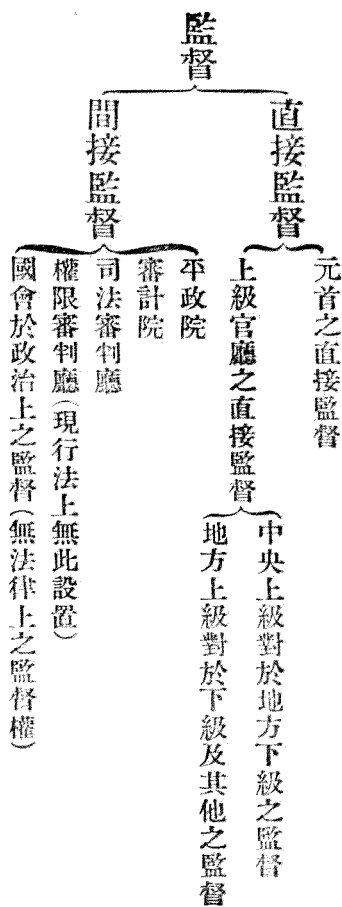 監督
直接監督
元首之直接監督
上級官廳之直接監督
中央上級對於地方下級之監督
地方上級對於下級及其他之監督
間接監督
平政院
審計院
司法審判廳
權限審判廳(現行法上無此設置)
國會於政治上之監督(無法律上之監督權)